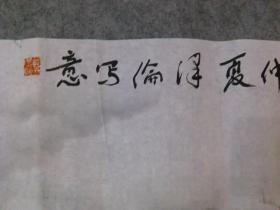 仲夏泽倫写意